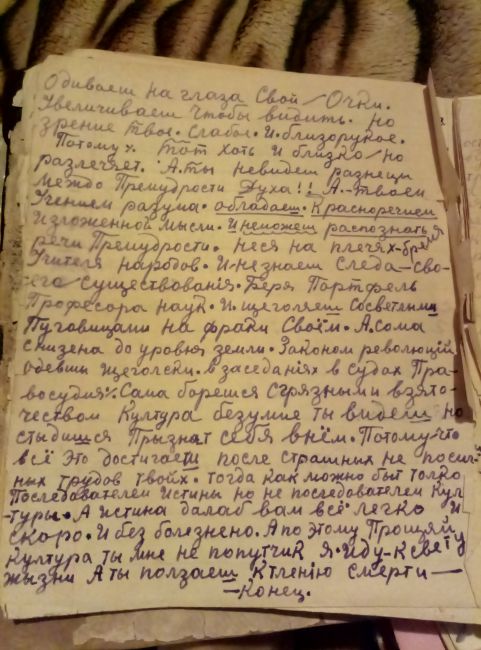 Одиваеш на глаза Свой Очки.
Увеличиваеш чтобы видить. но
зрение твое. слабое. и. близорукое.
Потому. тот хоть и близко но
разлечяет. А.ты невидеш разнеци
между Премудрости Духа!! А.-твоем
Учением разума. обладаеш. Красноречием
Изложенной мысли. И неможеш распознать я
речи Премудрости. неся на плечях-бремя
Учителя народов. И-незнаеш следа-сво-
его существованія. Беря Портфель
Професора наук. И. щеголяеш Сосветлыми
Пуговицами на фраки Своім. А.сома
снизена до уровню земли. Законом революцій
одевши щеголски. в заседаніях в судах Пра-
восудия. Сама борешся Сгрязными взято-
чеством Култура безумие ты видеш но
стыдишся Прызнат себя внём. Потому что
всё это достигаеш после страшных не посил-
ных трудов твойх. тогда как можно быт толко
Последователем Истины но не последователем Кул-
-туры. А Истина далаб вам всё легко и
скоро. И без болезнено. А по этому Прощяй
култура ты мне не попутчик Я. Иду-к свету
жызни А ты ползаеш Ктленію смерти—
—конец.